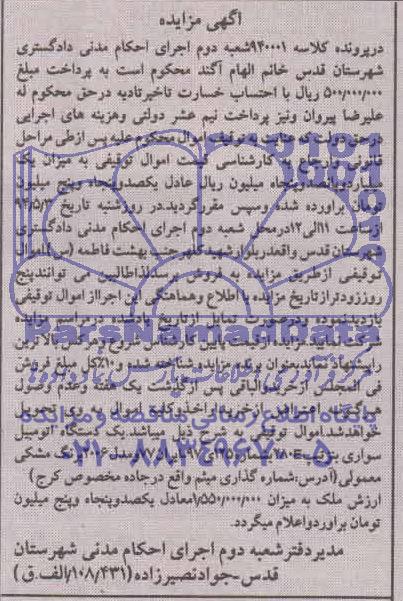 آگهی مزایده
درپرونده کلاسه ۹۴۰۰۰۱شعبه دوم اجرای احکام مدنی دادگستری
شهرستان قدس خانم الهام آگند محکوم است به پرداخت مبلغ
۵۰۰/۰۰۰/۰۰۰ ریال با احتساب خسارت تاخیرتادیه درحق محکوم له
علیرضا پیروان ونیز پرداخت نیم عشر دولتی وهزینه های اجرایی
درحق دولت که عنایت به توقیف اموال محکوم علیه پس ازطی مراحل
قانونی وارجاع به کارشناسی قیمت اموال توقیفی به میزان یک
میلیاردوپانصدوپنجاه میلیون ریال عادل یکصدوپنجاه وپنج میلیون
تومان براورده شده وسپس مقررگردید.در روزشنبه تاریخ ۹۴/۵/۳
ازساعت ۱۱الی۱۲درمحل شعبه دوم اجرای احکام مدنی دادگستری
شهرستان قدس واقعدربلوارشهیدکلهرجنب بهشت فاطمه (س)اموال
توقیفی ازطریق مزایده به فروش برسدلذاطالبین می توانندپنج
روززودترازتاریخ مزایده با اطلاع وهماهنگی این اجرااز اموال توقیفی
بازدیدنموده ودرصورت تمایل ازتاریخ یادشده درمراسم مزایده
شرکت نمایند.مزایده ازقیمت پایین کارشناسی شروع وهرکس بالاترین
راپیشنهاد نمایدبعنوان برنده مزایده شناخته شده و۱۰٪کل مبلغ فروش
فی المجلس ازخریدارالباقی پس ازگذشت یک هفته وعدم وصول
هیچگونه اعتراض ازخریداراخذوکلیه اموال به وی تحویل
خواهدشد.اموال توقیفی به شرح ذیل میباشد.یک دستگاه اتومبیل
سواری رنگ مشکی
معمولی(آدرس:شماره گذاری میثم واقع درجاده مخصوص کرج)
ارزش ملک به میزان ۱/۵۵۰/۰۰۰/۰۰۰معادل یکصدوپنجاه وپنج میلیون
تومان براورداعلام میگردد.
مدیردفترشعبه دوم اجرای احکام مدنی شهرستان
قدس-جوادنصیرزاده (۱۰۸/۴۳۱/الف.ق)
ParsNamadData
۰۲۱-۸۸۳۴۹۶۷۰-۵